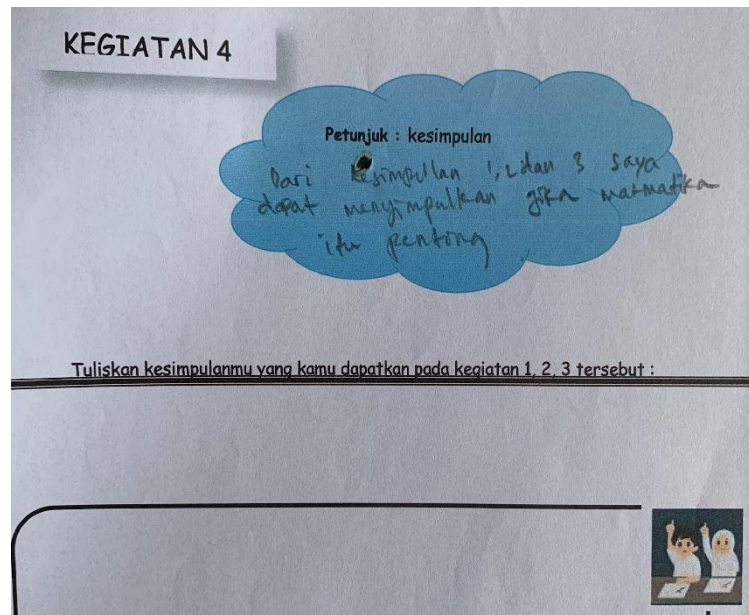 KEGIATAN 4
Petunjuk : kesimpulan
Dari kesimpullan 1, 2 dan 3 saya
dapat menyimpulkan jika matmatika
itu penting
Tuliskan kesimpulanmu yang kamu dapatkan pada kegiatan 1, 2, 3 tersebut :